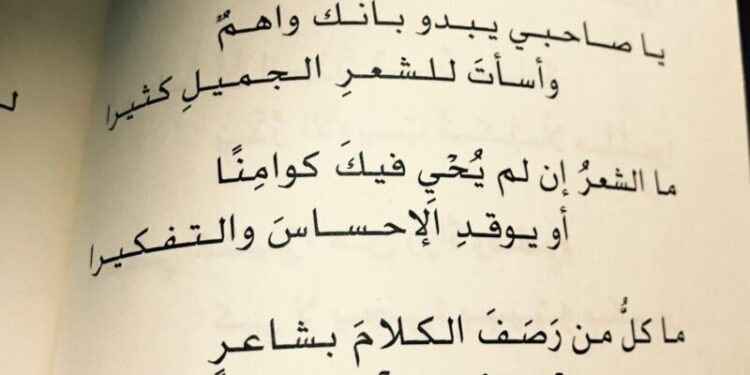 يا صاحبي يبدو بأنك واهمٌ
وأسأتَ للشعرِ الجميلِ كثيرا
ما الشعرُ إن لم يُحْيِ فيكَ كوامِنًا
أو يوقدِ الإحساسَ والتفكيرا
ما كلُّ من رَصَفَ الكلامَ بشاعرٍ